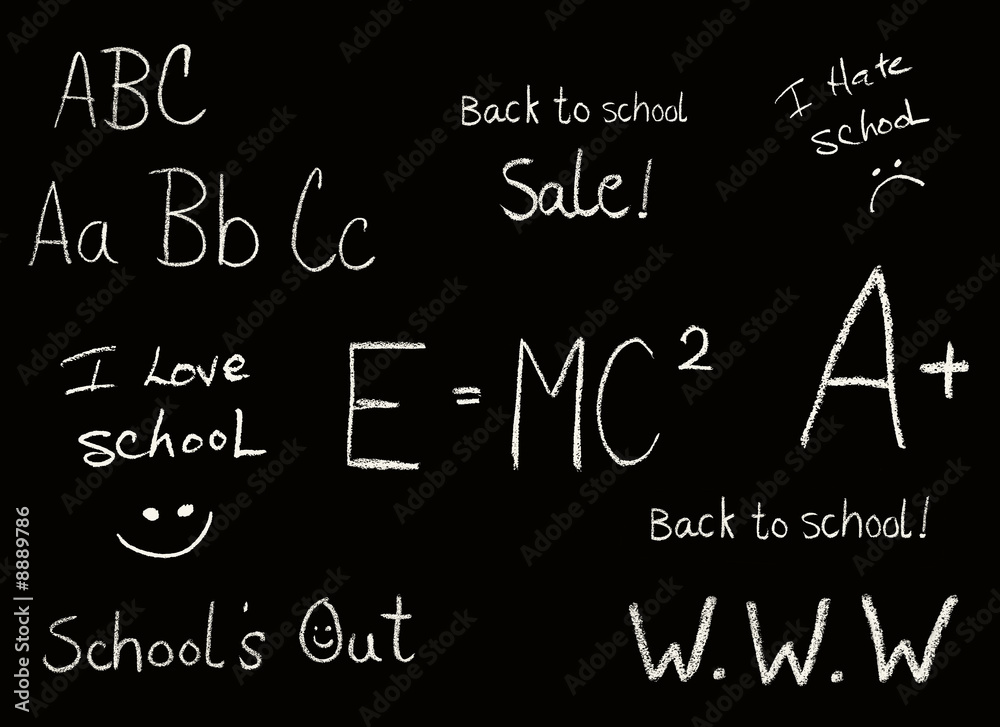 ABC
Back to school
Sale!
I Hate
school
Aa Bb Cc
I Love
school
E = MC²
A+
Back to school!
School's Out
W.W.W
Adobe Stock | #8889786